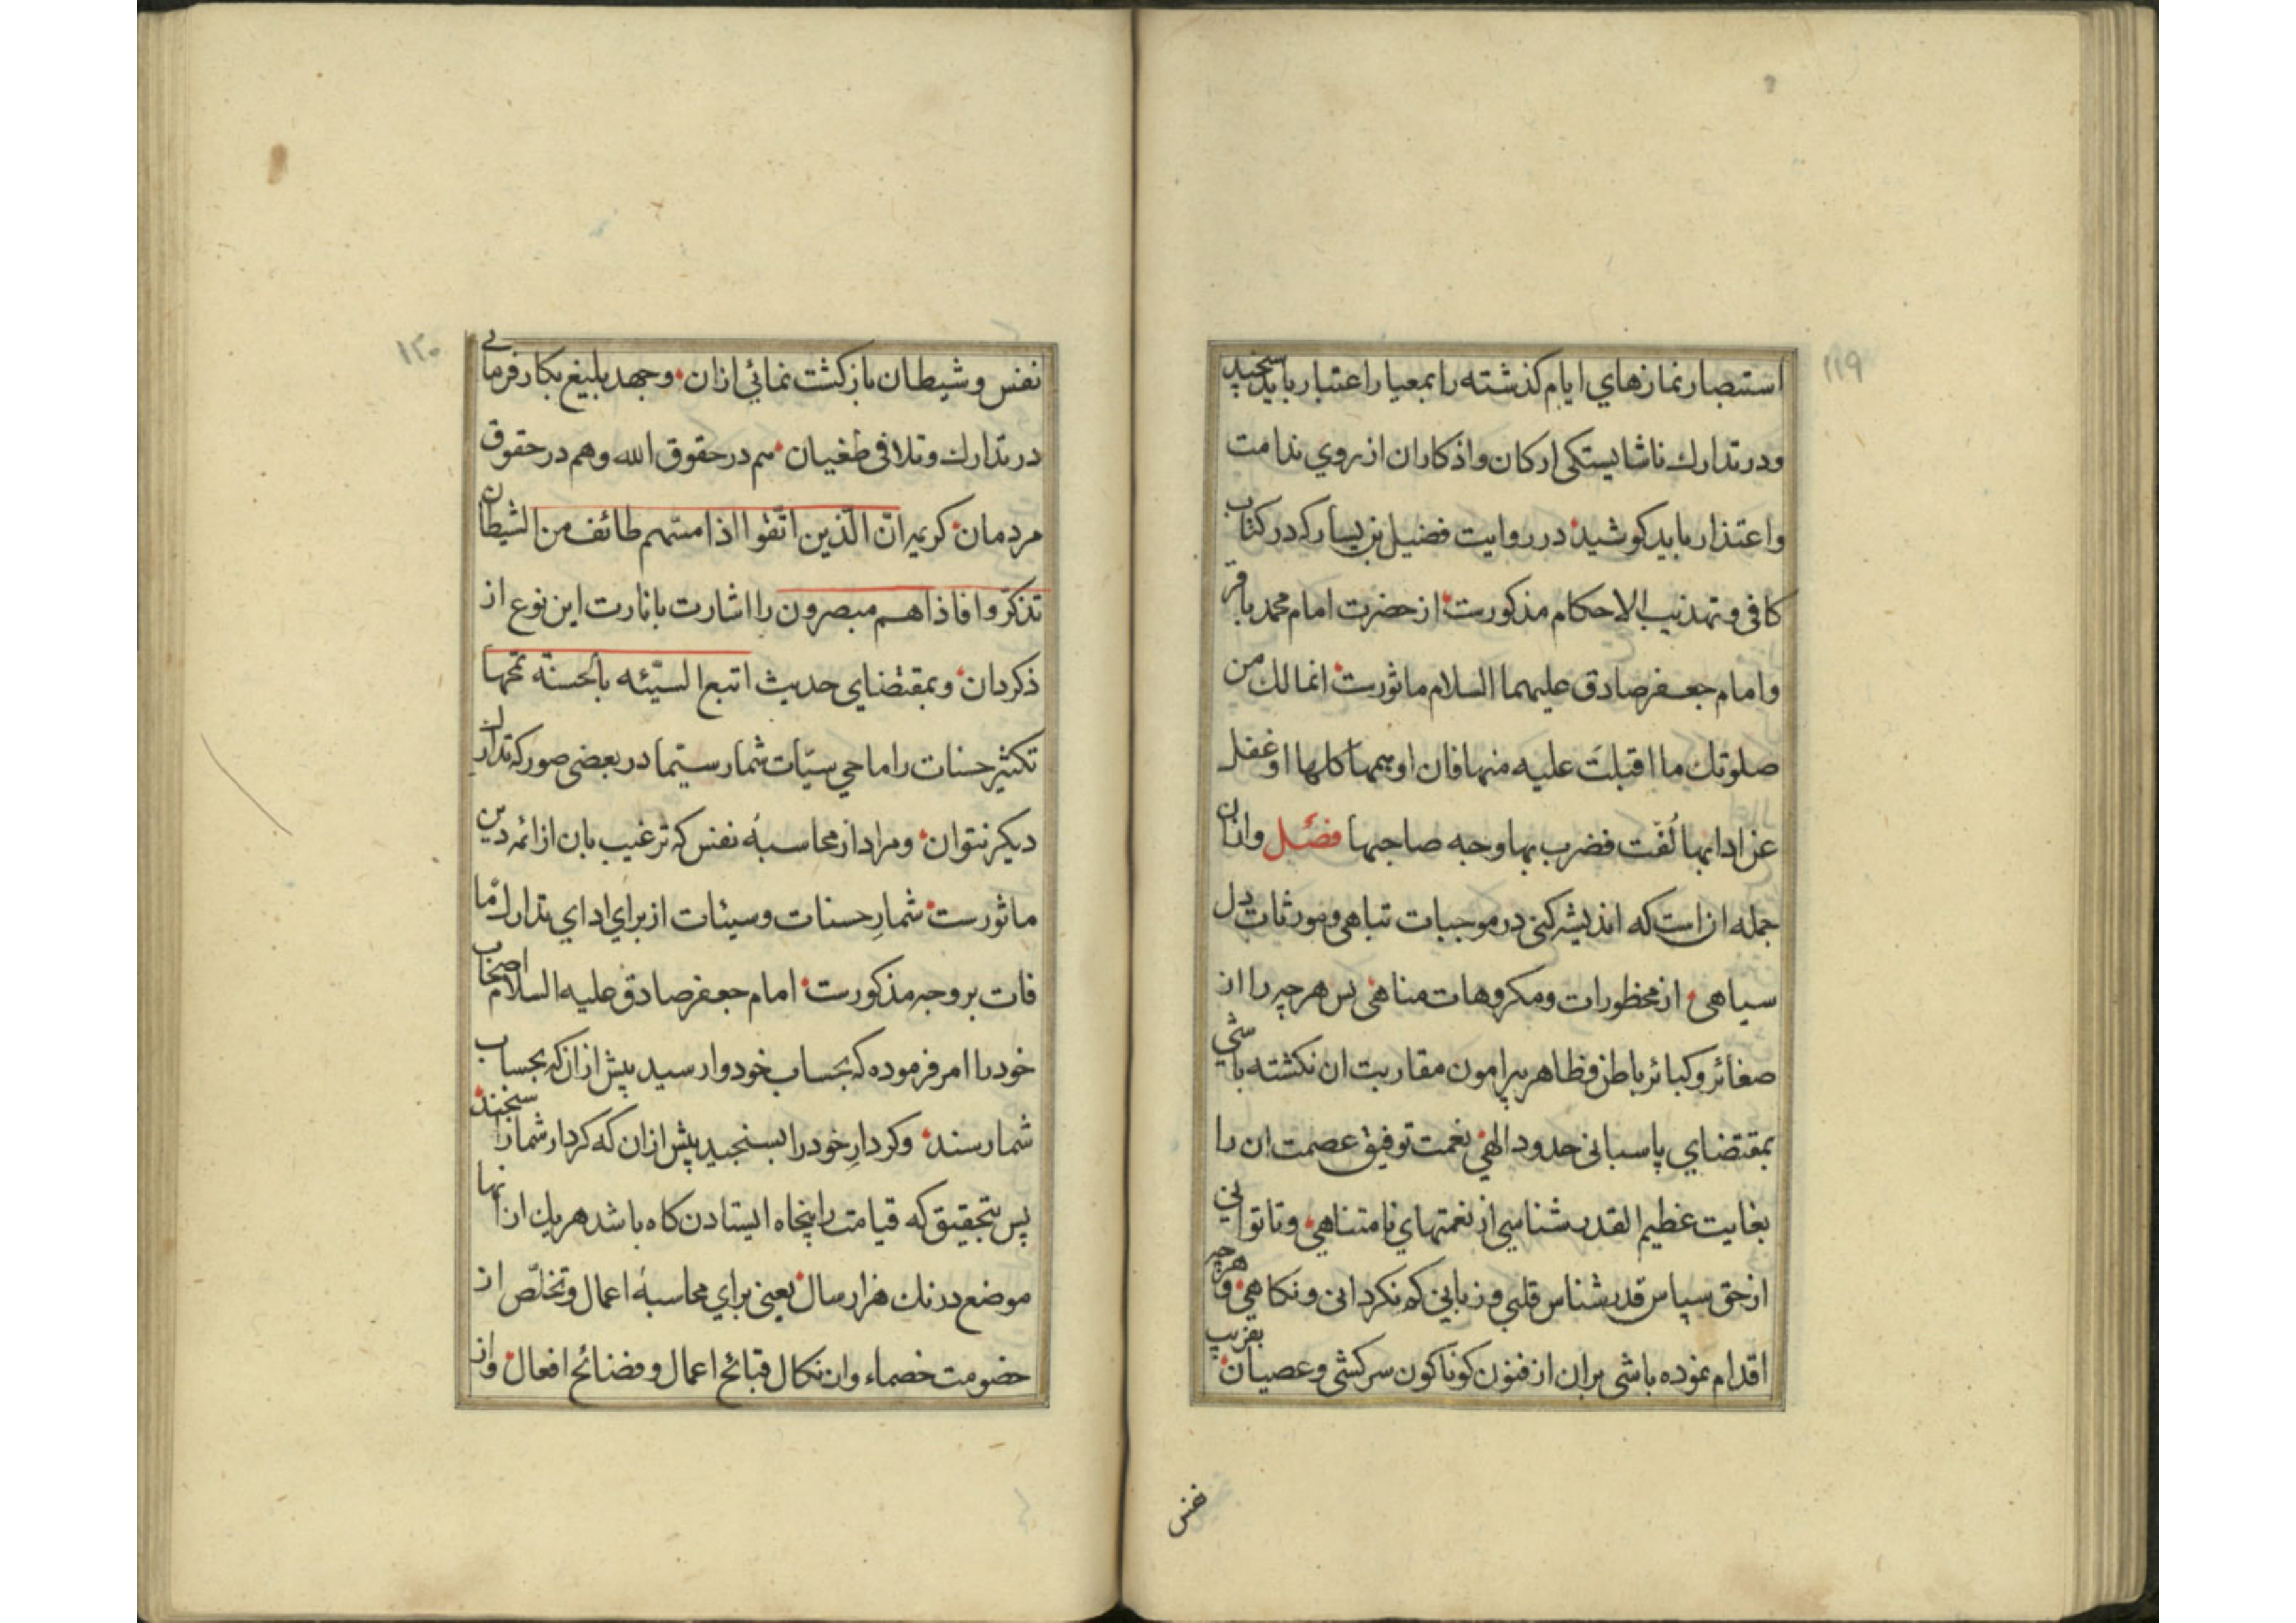 ۱۱۹
استبصار نمازهاي ايام كذشته را بمعيار اعتبار بايد سنجيد
ودر تدارك ناشايستكى اركان واذكاران از روي ندامت
واعتذار بايد كوشيد در روايت فضيل بن يسار كه در كتاب
كافى و تهذيب الاحكام مذكورست از حضرت امام محمد باقر
وامام جعفر صادق عليهما السلام ماثورست انما لك من
صلوتك ما اقبلت عليه منها فان اوهمها كلها اوغفل
عن ادابها لُفّت فضرب بها وجه صاحبها فصل وازان
جمله ان است كه انديشه كنى در موجبات تباهى ومورثات دل
سياهى از محظورات ومكروهات مناهى پس هر چه را از
صغائر وكبائر باطن وظاهر پيرامون مقاربت ان نكشته باشي
بمقتضاي پاسبانى حدود الهي نعمت توفيق عصمت ان را
بغايت عظيم القدر شناسي از نعمتهاي نامتناهي وتا توانى
از حق سپاس قدر شناس قلبي و زبانى كم نكردانى ونكاهي وهر چه
اقدام نموده باشى بران از فنون كوناكون سركشى وعصيان بفريب
نفس
۱۲۰
نفس وشيطان بازكشت نمائي ازان وجهد بليغ بكار فرمائى
در تدارك وتلافى طغيان هم در حقوق الله وهم در حقوق
مردمان كريمه انّ الّذين اتّقوا اذا مسّهم طائف من الشيطان
تذكّروا فاذا هم مبصرون را اشارت بانارت اين نوع از
ذكردان وبمقتضاي حديث اتبع السيّئه بالحسنة تمحها
تكثير حسنات را ماحي سيّات شمار سيّما در بعضى صور كه تدارك ان
ديكر نتوان ومراد از محاسبهٔ نفس كه ترغيب بان از ائمه دين
ماثورست شمارِ حسنات وسيئات از براي اداي تدارك مّا
فات بر وجه مذكورست امام جعفر صادق عليه السلام اصحاب
خود را امر فرموده كه بحساب خود وارسيد پيش ازان كه بحساب
شما رسند وكردارِ خود را بسنجيد پيش ازان كه كردار شما را سنجند
پس بتحقيق كه قيامت را پنجاه ايستادن كاه باشد هر يك ازانها
موضع درنك هزار سال يعنى براي محاسبهٔ اعمال وتخلّص از
خصومت خصماء وان نكال قبائح اعمال وفضائح افعال واز